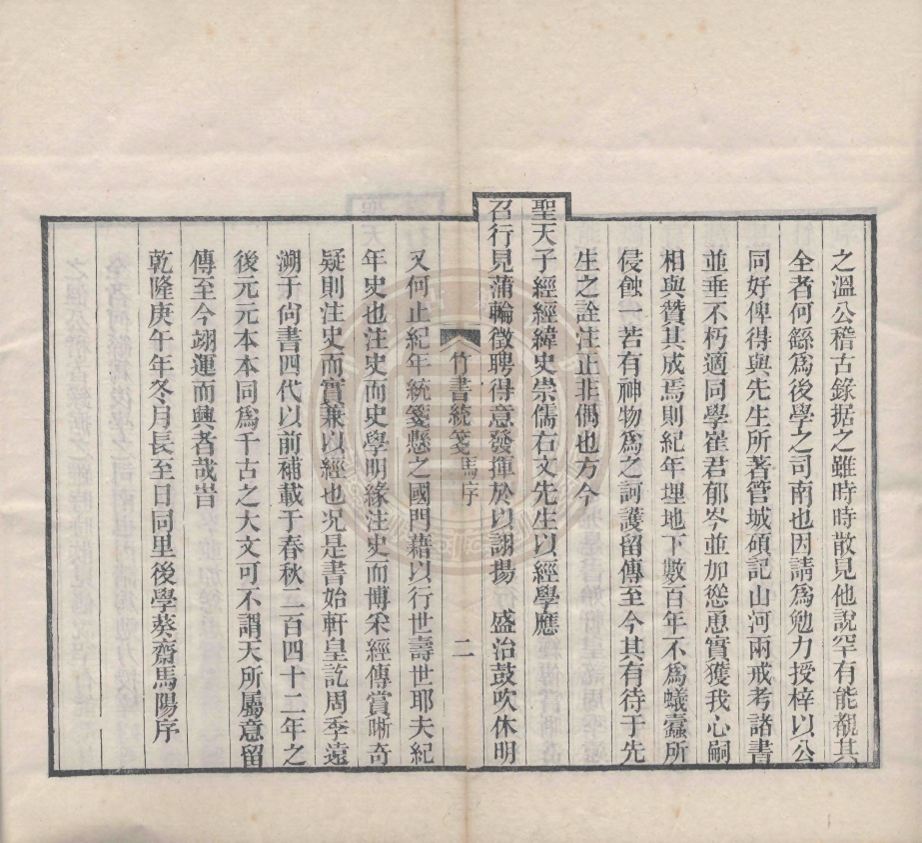 之溫公稽古錄据之雖時時散見他說罕有能覩其
全者何繇爲後學之司南也因請爲勉力授梓以公
同好俾得與先生所著管城碩記山河兩戒考諸書
並垂不朽適同學崔君郁岑並加慫恿實獲我心嗣
相與贊其成焉則紀年埋地下數百年不爲蟻蠹所
侵蝕一若有神物爲之訶護留傳至今其有待于先
生之詮注止非偶也方今
聖天子經經緯史崇儒右文先生以經學應
召行見蒲輪徵聘得意發揮於以詡揚　盛治鼓吹休明
竹書統箋　馬序　二
又何止紀年統箋懸之國門藉以行世壽世耶夫紀
年史也注史而史學明緣注史而博采經傳賞晰奇
疑則注史而實兼以經也况是書始軒皇訖周季遠
溯于尙書四代以前補載于春秋二百四十二年之
後元元本本同爲千古之大文可不謂天所屬意留
傳至今翊運而興者哉旹
乾隆庚午年冬月長至日同里後學葵齋馬陽序